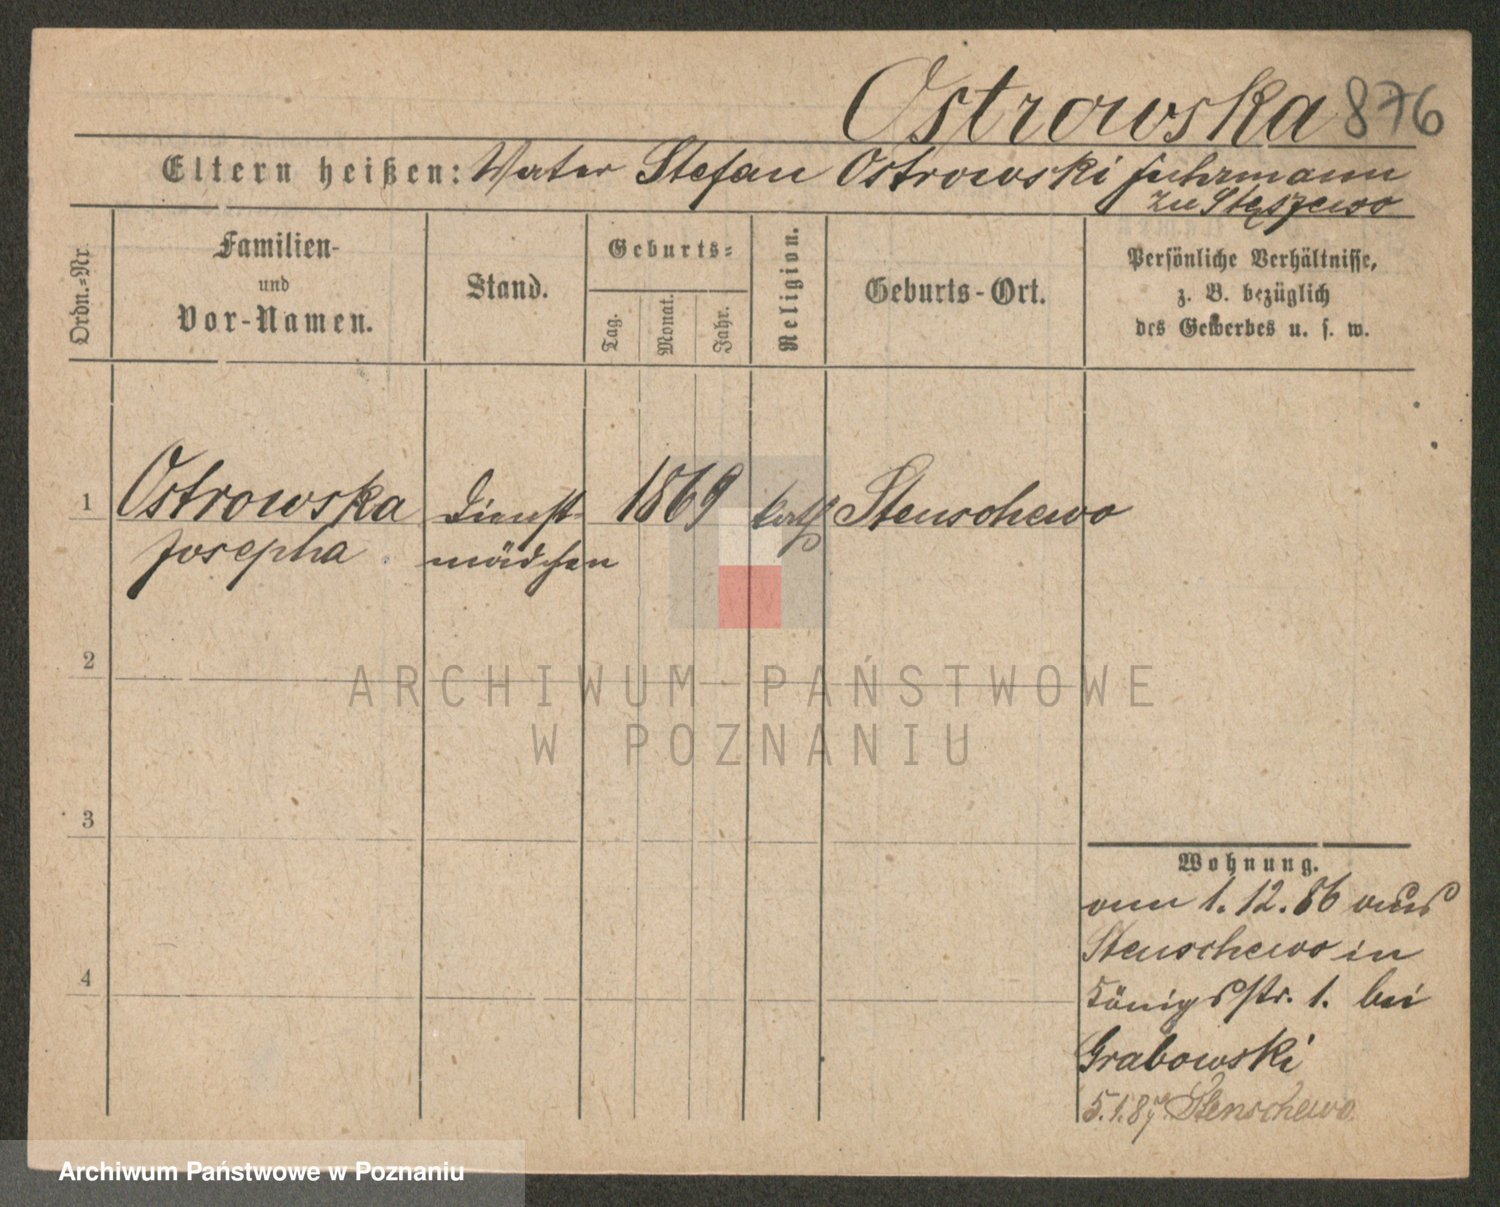 Ostrowska 876
Eltern heißen: Vater Stefan Ostrowski Fuhrmann
zu Stęszewo
Ordn.-Nr.
Familien-
und
Vor-Namen.
Stand.
Geburts-
Tag.
Monat.
Jahr.
Religion.
Geburts-Ort.
Persönliche Verhältnisse,
z. B. bezüglich
des Gewerbes u. s. w.
1 Ostrowska Dienst- 1869 kath Stenschewo
Josepha mädchen
2
ARCHIWUM PAŃSTWOWE
W POZNANIU
3
Wohnung.
vom 1.12.86 aus
Stenschewo in
Königsstr. 1. bei
4
Grabowski
5.1.87 Stenschewo
Archiwum Państwowe w Poznaniu